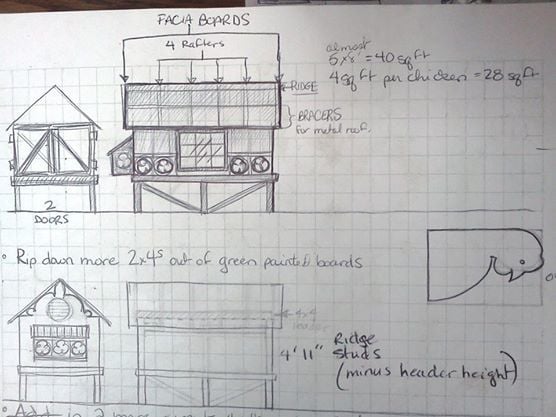 FACIA BOARDS
4 Rafters
almost
5x8' = 40 sq ft
4 sq ft per chicken = 28 sq ft
RIDGE
BRACERS
for metal roof.
2
DOORS
• Rip down more 2x4s out of green painted boards
4x4
header
4' 11" Ridge
Studs
(minus header height)